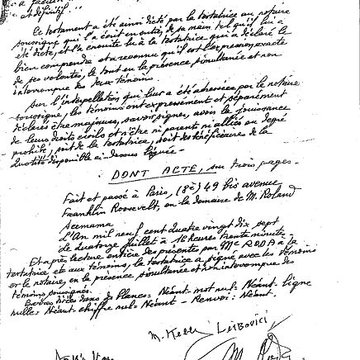 définitif "
Le testament a été ainsi dicté par la testatrice au notaire
soussigné qui l'a écrit en entier, de sa main tel qu'il lui a
été dicté, et l'a ensuite lu à la testatrice qui a déclaré le
bien comprendre et a reconnu qu'il est l'expression exacte
de ses volontés, le tout en la présence simultanée et non
interrompue des deux témoins.
Sur l'interpellation qui leur a été adressée par le notaire
soussigné, les témoins ont expressément et séparément
déclaré être majeurs, savoir signer, avoir la jouissance
de leurs droits civils et n'être ni parents ni alliés au degré
prohibé, soit de la testatrice, soit des bénéficiaires de la
quotité disponible ci-dessus léguée -
DONT ACTE, sur trois pages -
Fait et passé à Paris, (8e) 49 bis avenue
Franklin Roosevelt, en la demeure de M. Roland
L'An mil neuf cent quatre vingt dix sept
Le quatorze Juillet à 16 heures trente minutes
Et après lecture entière des présentes par Me RODA à la
testatrice et aux témoins, la testatrice a signé avec les témoins
et le notaire, en la présence simultanée et non interrompue des
témoins soussignés
Néant. mot nul: Néant. Ligne
nulle: Néant. chiffre nul: Néant - Renvoi: Néant.
LEIBOVICI